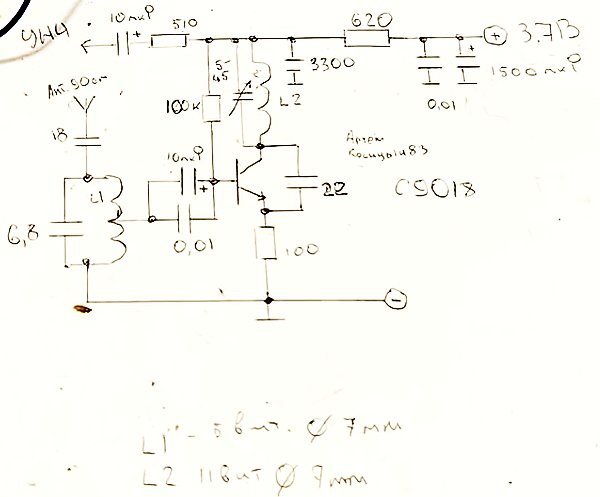 УНЧ
10мкР
+
510
620
+ 3.7В
5-45
3300
+
1500мкР
0,01
L2
Ант. 90см
18
100к
10мкР
+
Артем
Косицын 83
22
С9018
L1
6,8
0,01
100
-
L1 - 5 вит. Ø 7мм
L2 11вит Ø 7мм